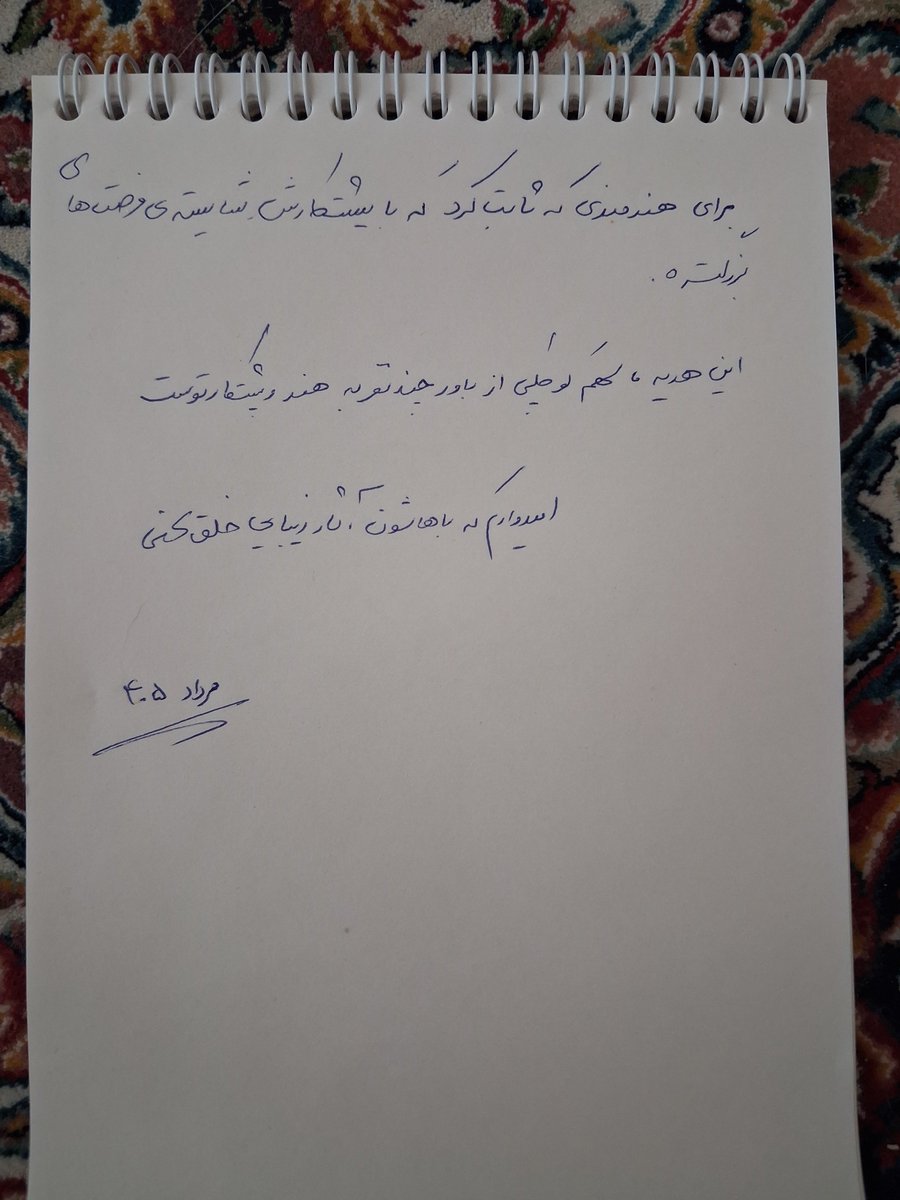 برای هنرمندی که ثابت کرد که با پشتکارش، شایسته ی فرصت های
بزرگتره.
این هدیه سهم کوچکی از باور چند نفر به هنر و پشتکار توست
امیدوارم که باهاشون آثار زیبایی خلق کنی
مرداد ۴۰۵